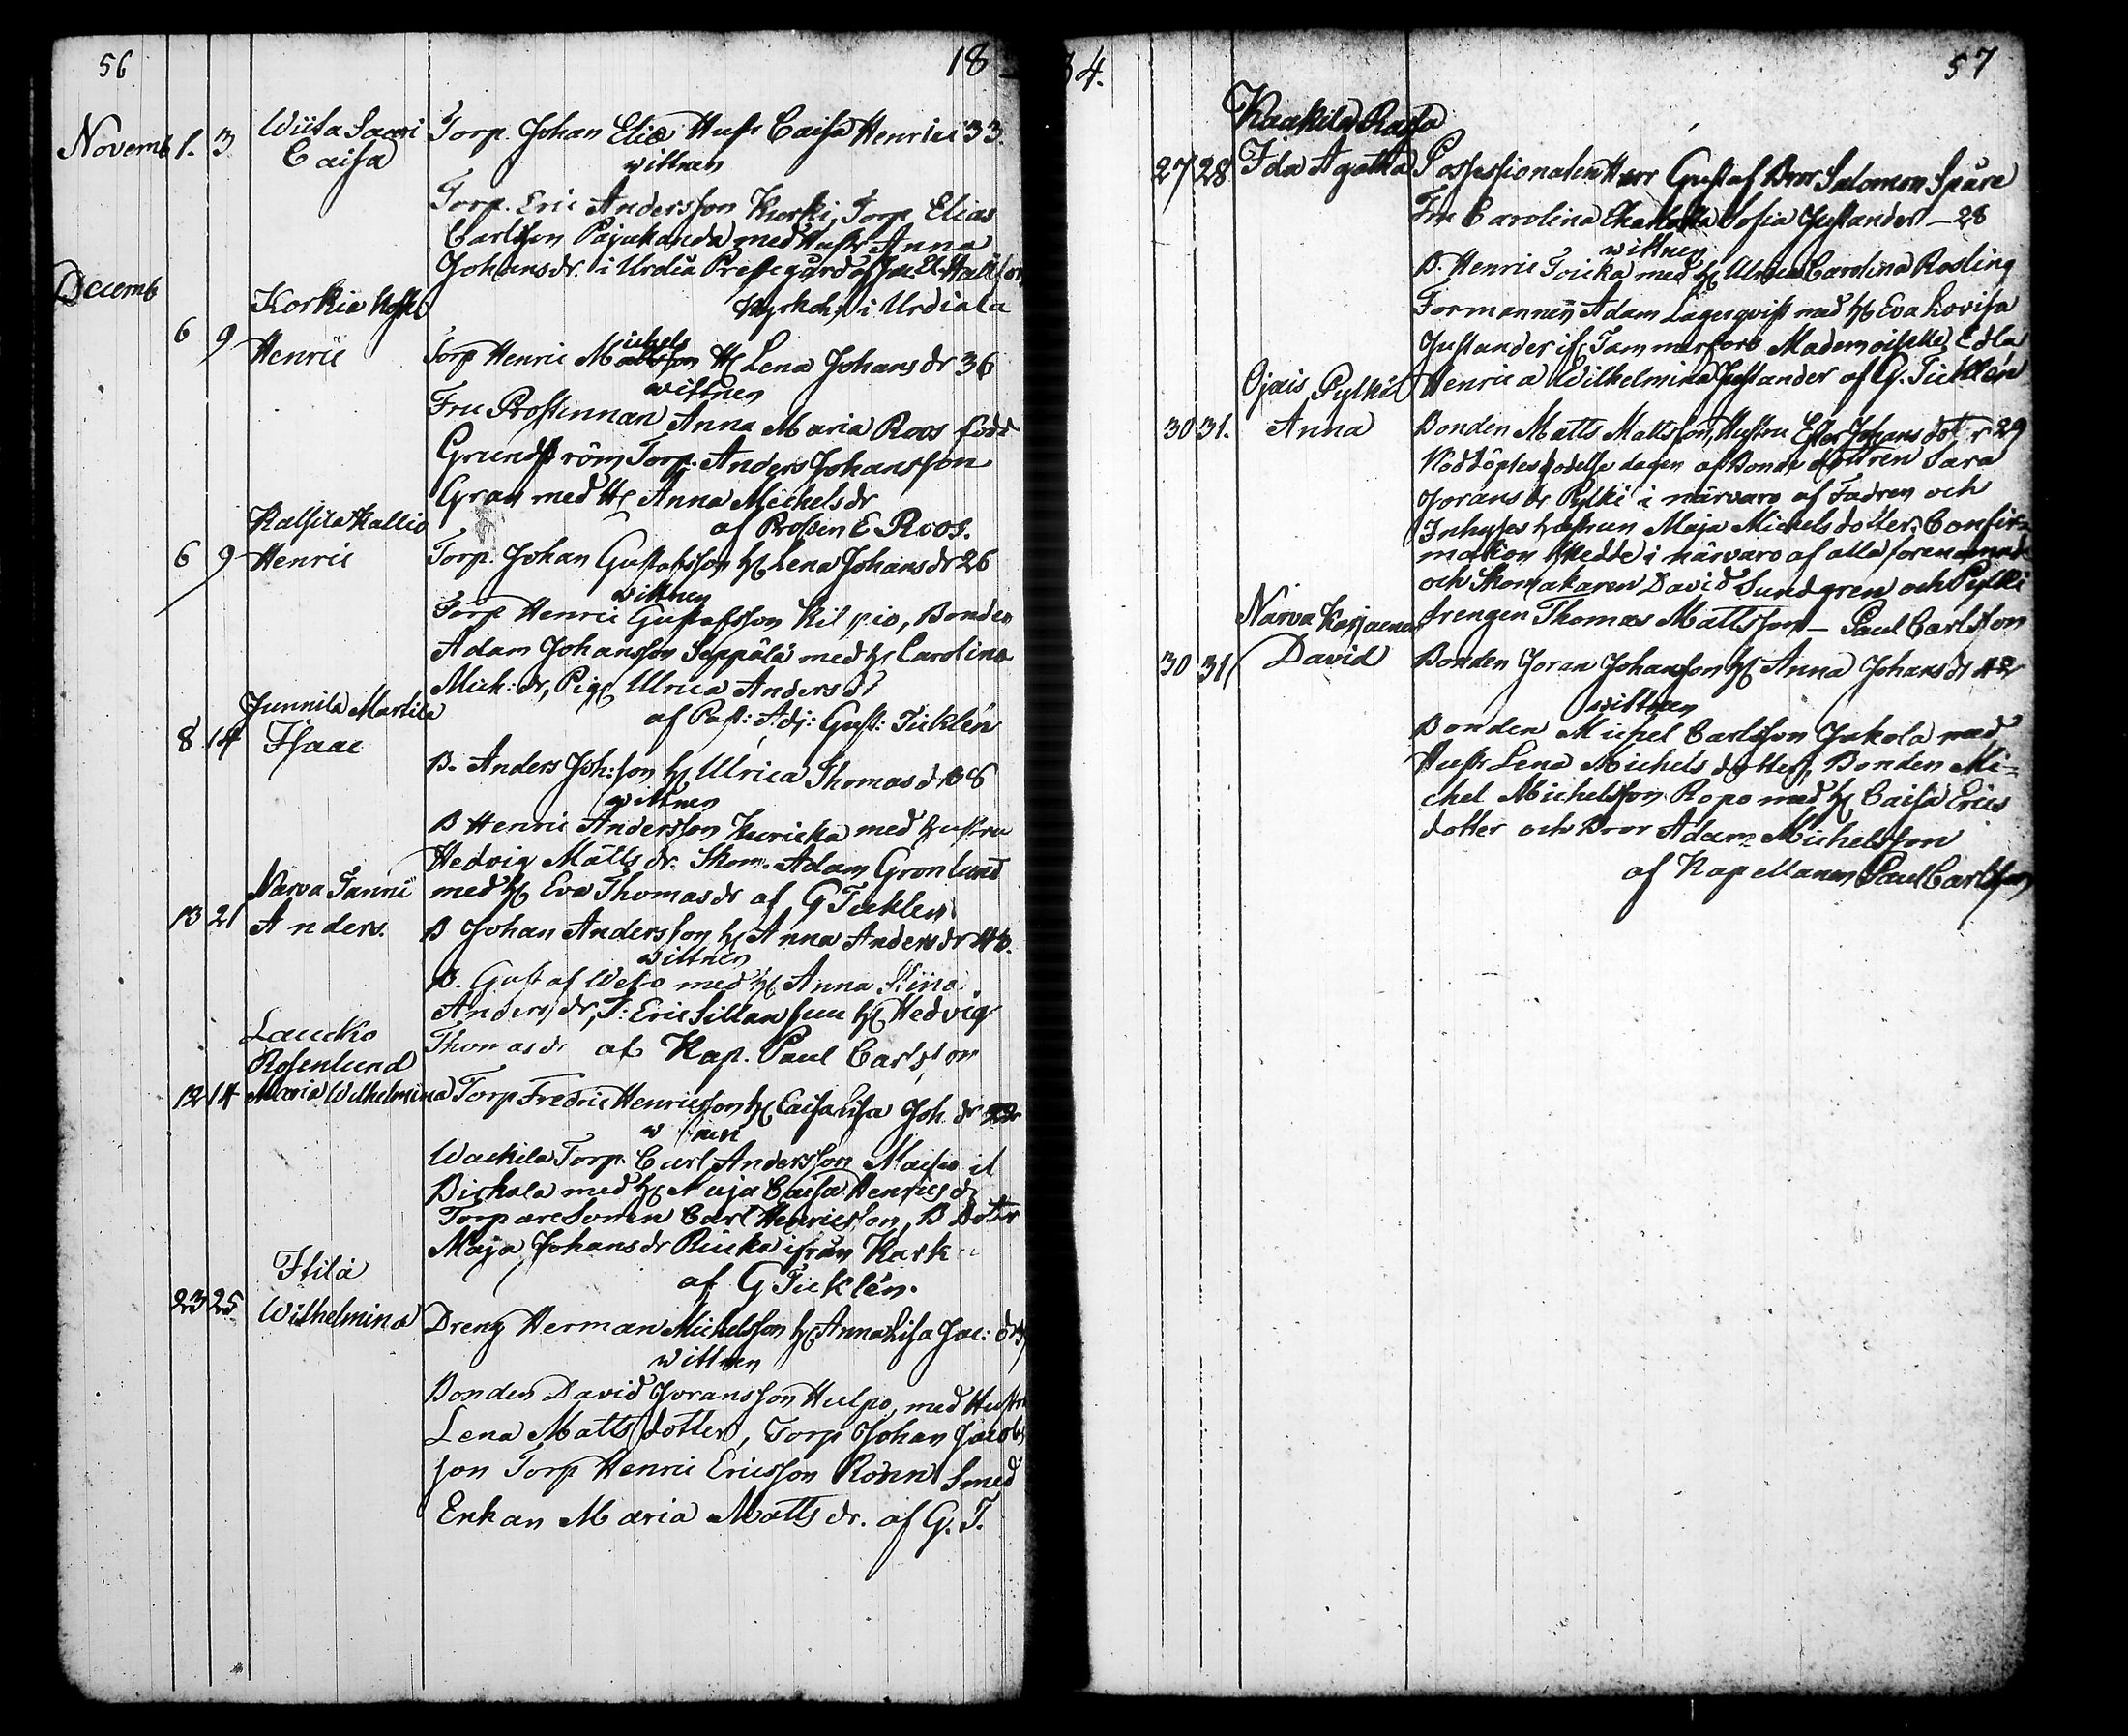 56
18
Novemb 1. 3 Wiisa Saari Torp. Johan Elia Hustr Caisa Henrici 33.
Caisa
wittnen
Torp. Eric Andersson Kurki, Torp Elias
Carlsson Pajukanda med Hustr Anna
Johansdr. i Urdia Prestegård af
Kyrkoh. i Urdiala
Decemb
Korkia
6 9 Henric Torp Henric Michelsson H Lena Johans dr 36
wittnen
Fru Prostinnan Anna Maria Roos född
Grundström Torp. Anders Johansson
Gran med H Anna Michelsdr
af Prosten E Roos.
Kalsila Kallio
6 9 Henric Torp. Johan Gustafsson H Lena Johans dr 26
wittnen
Torp Henric Gustafsson Kilpio, Bonden
Adam Johansson Seppälä med H Carolina
Mich: dr, Pig Ulrica Anders dr
af Past: Adj: Gust: Ticklén
Junnila Martila
8 14 Isaac
B. Anders Joh:son H Ulrica Thomas d 36
wittnen
B Henric Andersson Kuricka med Hustru
Hedvig Matts dr. Skom. Adam Gronlund
med H Eva Thomasdr af G Ticklen
Narva Janni
13 21 Anders. B Johan Andersson H Anna Anders dr
wittnen
B. Gustaf Weso med H Anna Stina
Anders dr, T: Eric Sillansuu H Hedvig
Thomasdr af Kap. Paul Carlsson
Laucko
Rosenlund
12 14 Maria Wilhelmina Torp Fredric Henricsson H Caisa Lisa Joh. dr 22
wittnen
Wackila Torp. Carl Andersson
med H Maja Caisa Henrics dr
Torparesonen Carl Henricsson, B Dotr
Maja Johansdr Ricka ifrån Kark
af G Ticklén.
Itila
23 25 Wilhelmina Dreng Herman Michelsson H Anna Lisa Jac: dr
wittnen
Bonden David Joransson Hulpo, med Hustru
Lena Matts dotter, Torp Johan Jacobs
son Torp Henric Ericsson Smed
Enkan Maria Matts dr. af G. T.
34.
57
Kaakila
27 28 Ida Agatha Possessionaten Herr Gustaf Bror Salomon Spåre
Fru Carolina Charlotta Sofia Justander - 28
wittnen
B. Henric Toicka med H Ulrica Carolina Rosling
Formannen Adam Lagerqvist med H Eva Lovisa
Justander if Tammerfors Mademoiselle Edla
Henrica Wilhelmina Justander af G. Ticklén
Ojais Pylki
30 31. Anna Bonden Matts Mattsson, Hustru Ester Johans dotr 29
Nöddöptes födelse dagen af Bonde dottren Sara
Jorans dr Pylki i närvaro af Fadren och
Inhyses hustrun Maja Michels dotter. Confir=
mation skedde i närvaro af alla forenamnde
och Skomakaren David Sundgren och Pylki
drengen Thomas Mattsson - Paul Carlsson
Narva
30 31 David Bonden Joran Johansson H Anna Johans dr 42
wittnen
Bonden Michel Carlsson Jukola med
Hustr Lena Michels dotter, Bonden Mi=
chel Michelsson Ropo med H Caisa Erics
dotter och Bror Adam Michelsson
af Kapellanen Paul Carlsson